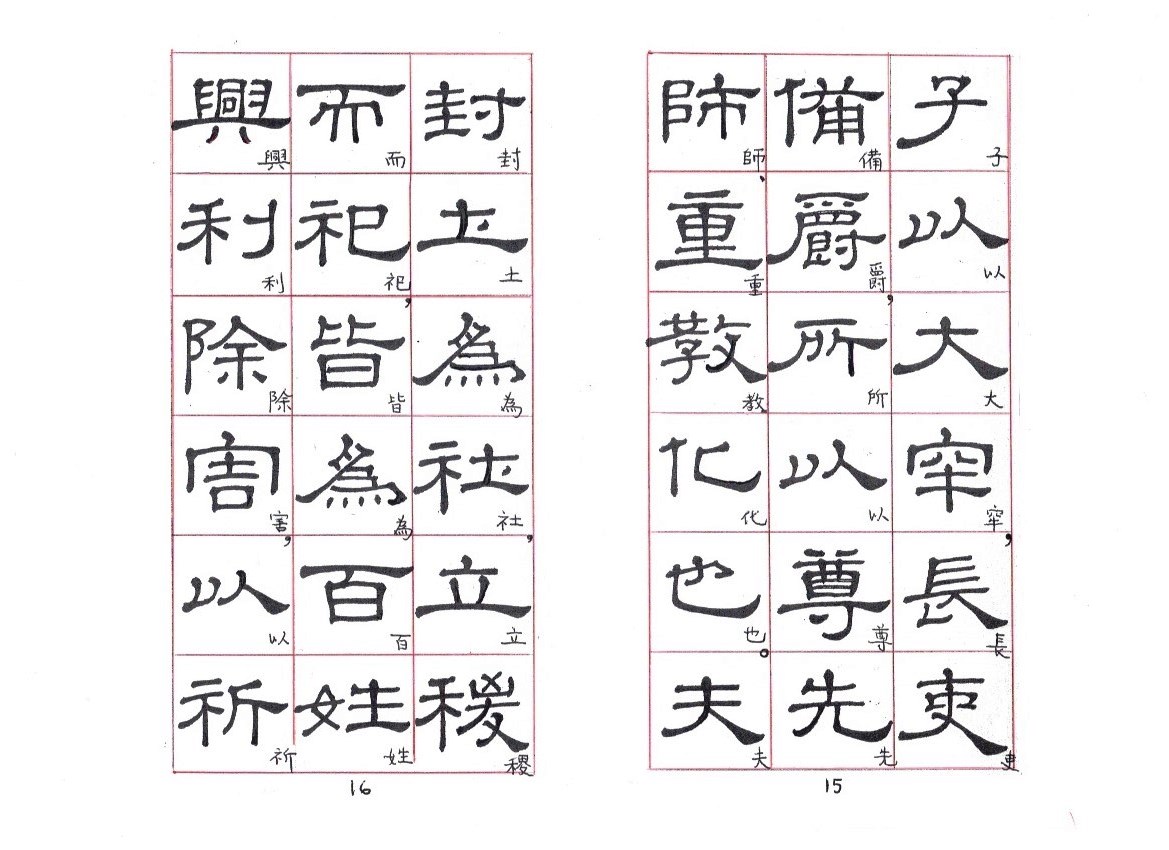 子以大窂長吏
子以大窂，長吏
備爵所以尊先
備爵，所以尊先
師重教化也夫
師、重教化也。夫
15
封土為社立稷
封土為社，立稷
而祀皆為百姓
而祀，皆為百姓
興利除害以祈
興利除害，以祈
16